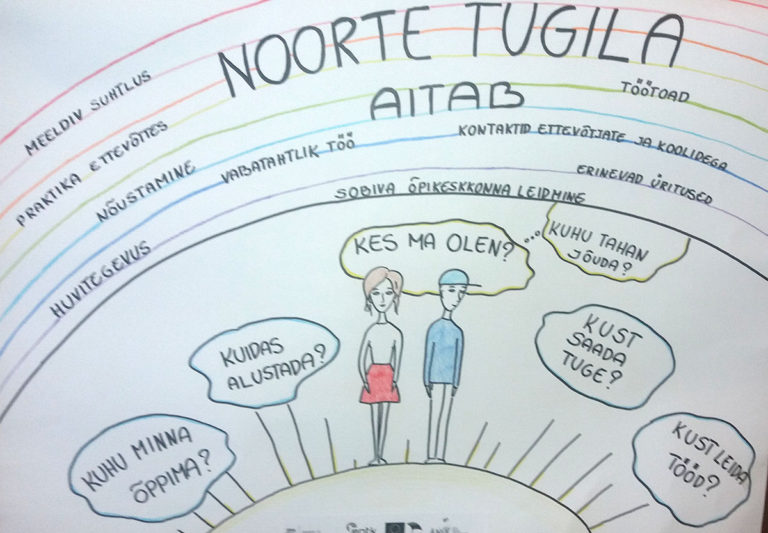 NOORTE TUGILA
AITAB
MEELDIV SUHTLUS
PRAKTIKA ETTEVÕTTES
NÕUSTAMINE
HUVITEGEVUS
VABATAHTLIK TÖÖ
SOBIVA ÕPIKESKKONNA LEIDMINE
TÖÖTOAD
KONTAKTID ETTEVÕTJATE JA KOOLIDEGA
ERINEVAD ÜRITUSED
KES MA OLEN?
KUHU TAHAN
JÕUDA?
KUIDAS
ALUSTADA?
KUST
SAADA
TUGE?
KUHU MINNA
ÕPPIMA?
KUST LEIDA
TÖÖD?